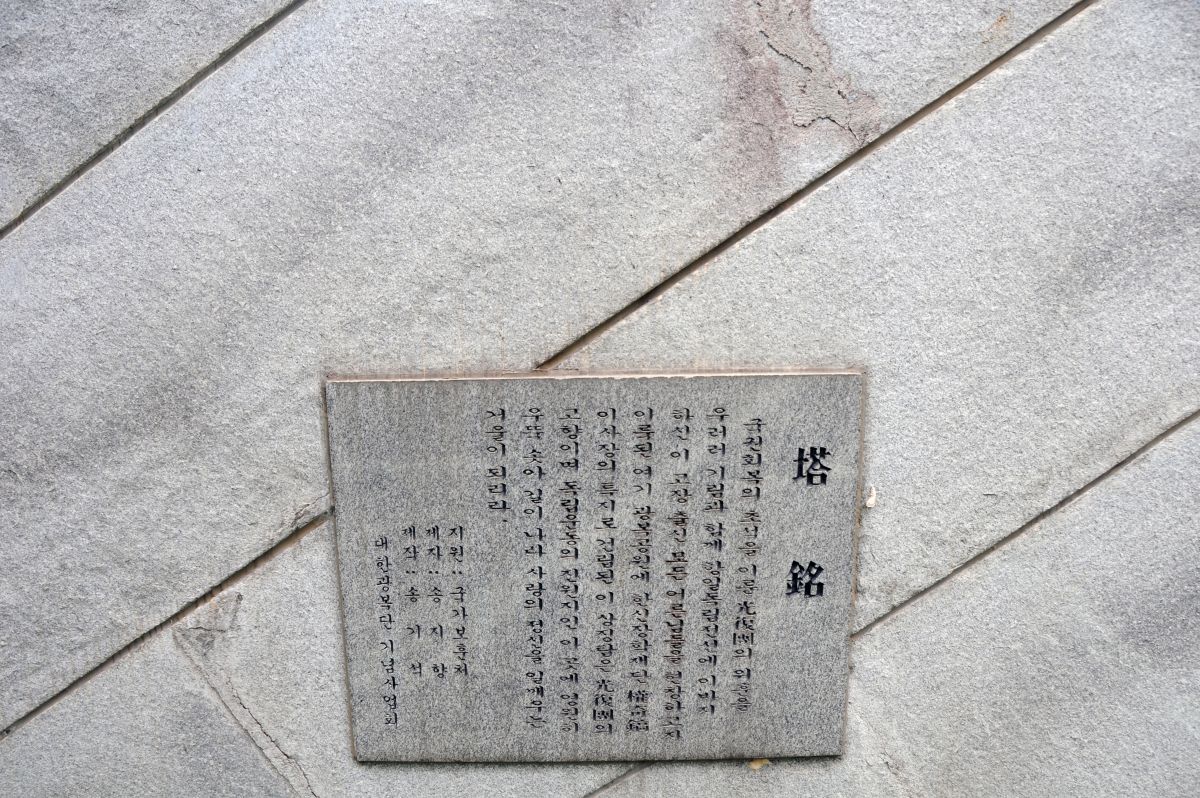 塔 銘
국권회복의 초석을 이룬 光復團의 위훈을
우러러 기림과 함께 항일독립전선에 이바지
하신 이 고장 출신 모든
이룩된 여기 광복공원에
이사장의 특지로 건립된 이 상징탑은 光復團의
고향이며 독립운동의 진원지인 이 곳에 영원히
우뚝 솟아 길이 나라 사랑의 정신을 일깨워줄
거울이 되리라.
지원 : 국가보훈처
제자 : 송 지 향
제작 : 송 기 석
대한광복단 기념사업회